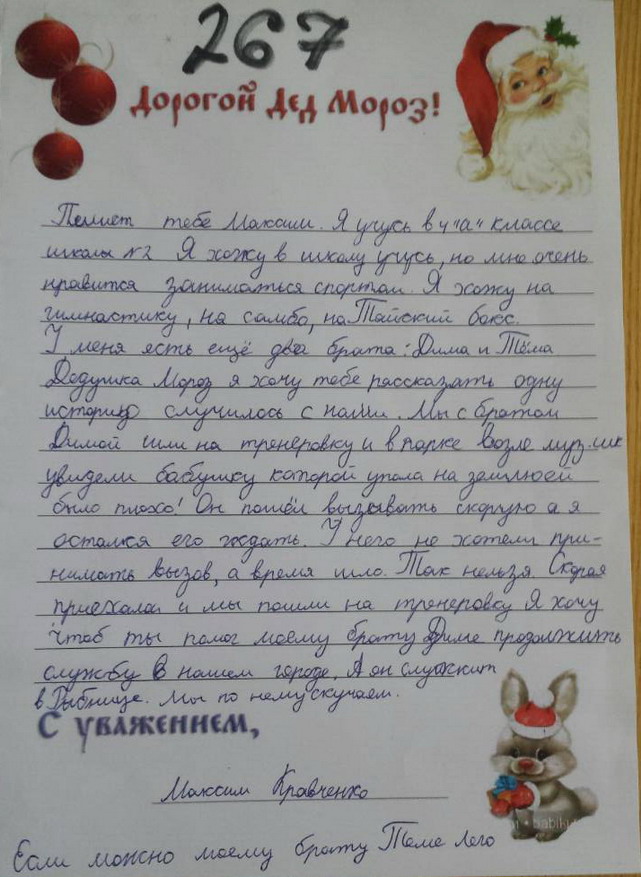 267
Дорогой Дед Мороз!
Пешиет тебе Максим. Я учусь в 4 "а" классе
школы №2 Я хожу в школу учусь, но мне очень
нравится заниматься спортом. Я хожу на
гимнастику, на самбо, на Тайский бокс.
У меня есть ещё два брата: Дима и Тёма
Дедушка Мороз я хочу тебе рассказать одну
историю случилось с нами. Мы с братом
Димой шли на тренеровку и в парке возле муз.шк
увидели бабушку которой упала на землюей
было плохо! Он пошёл вызывать скорую а я
остался его ждать. У него не хотели при-
нимать вызов, а время шло. Так нельзя. Скорая
приехала и мы пошли на тренеровку Я хочу
чтоб ты помог моему брату Диме продолжить
службу в нашем городе. А он служит
в Рыбнице. Мы по нему скучаем.
С уважением,
Максим Кравченко
Если можно моему брату Теме Лего